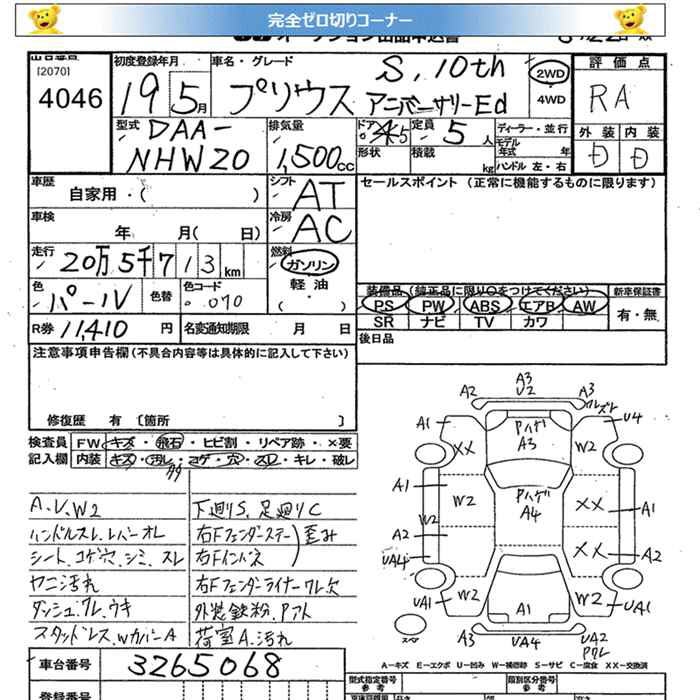 完全ゼロ切りコーナー
[2070]
4046
初度登録年月
19 5月
車名・グレード
プリウス S,10th アニバーサリーEd
2WD
4WD
評価点
RA
外装 内装
D D
型式
DAA-
NHW20
排気量
1,500cc
ドア
5
形状
定員 5人
積載 kg
ディーラー・並行
モデル年式 年
ハンドル 左・右
車歴
自家用・( )
シフト AT
セールスポイント (正常に機能するものに限ります)
車検
年 月( 日)
冷房 AC
走行 20万5千713km
燃料
ガソリン
軽油
・( )
色 パール
色替
色コード
070
装備品(純正品に限り○をつけてください)
新車保証書
PS PW ABS エアB AW
有・無
SR ナビ TV カワ
R券 11,410円
名変通知期限 月 日
後日品
注意事項申告欄(不具合内容等は具体的に記入して下さい)
修復歴 有 〔箇所 〕
検査員 FW キズ・飛石・ヒビ割・リペア跡・×要
記入欄 内装 キズ・汚レ・コゲ・穴・スレ・キレ・破レ
A.U.W2
ハンドルスレ.レバーオレ
シート.コゲ穴.シミ.スレ
ヤニ汚れ
ダッシュ.ワレ.ウキ
スタッドレス.WカバーA
下廻りS.足廻りC
右Fフェンダーステー
右Fインパネ
歪み
右Fフェンダーライナーワレ欠
外装鉄粉.Pブト
荷室A.汚れ
A2
A3
U2
A3
ズレ
A1
XX
Pハゲ
A3
W2
U4
A1
W2
Pハゲ
A4
XX
A1
W2
A2
XX
A2
UA4
UA1
W2
A1
W2
UA1
スペア
A3
UA4
UA2
Pワレ
A-キズ E-エクボ U-凹み W-補修跡 S-サビ C-腐食 XX-交換済
車台番号 3265068
型式指定番号
参考
類別区分番号
参考
登録番号